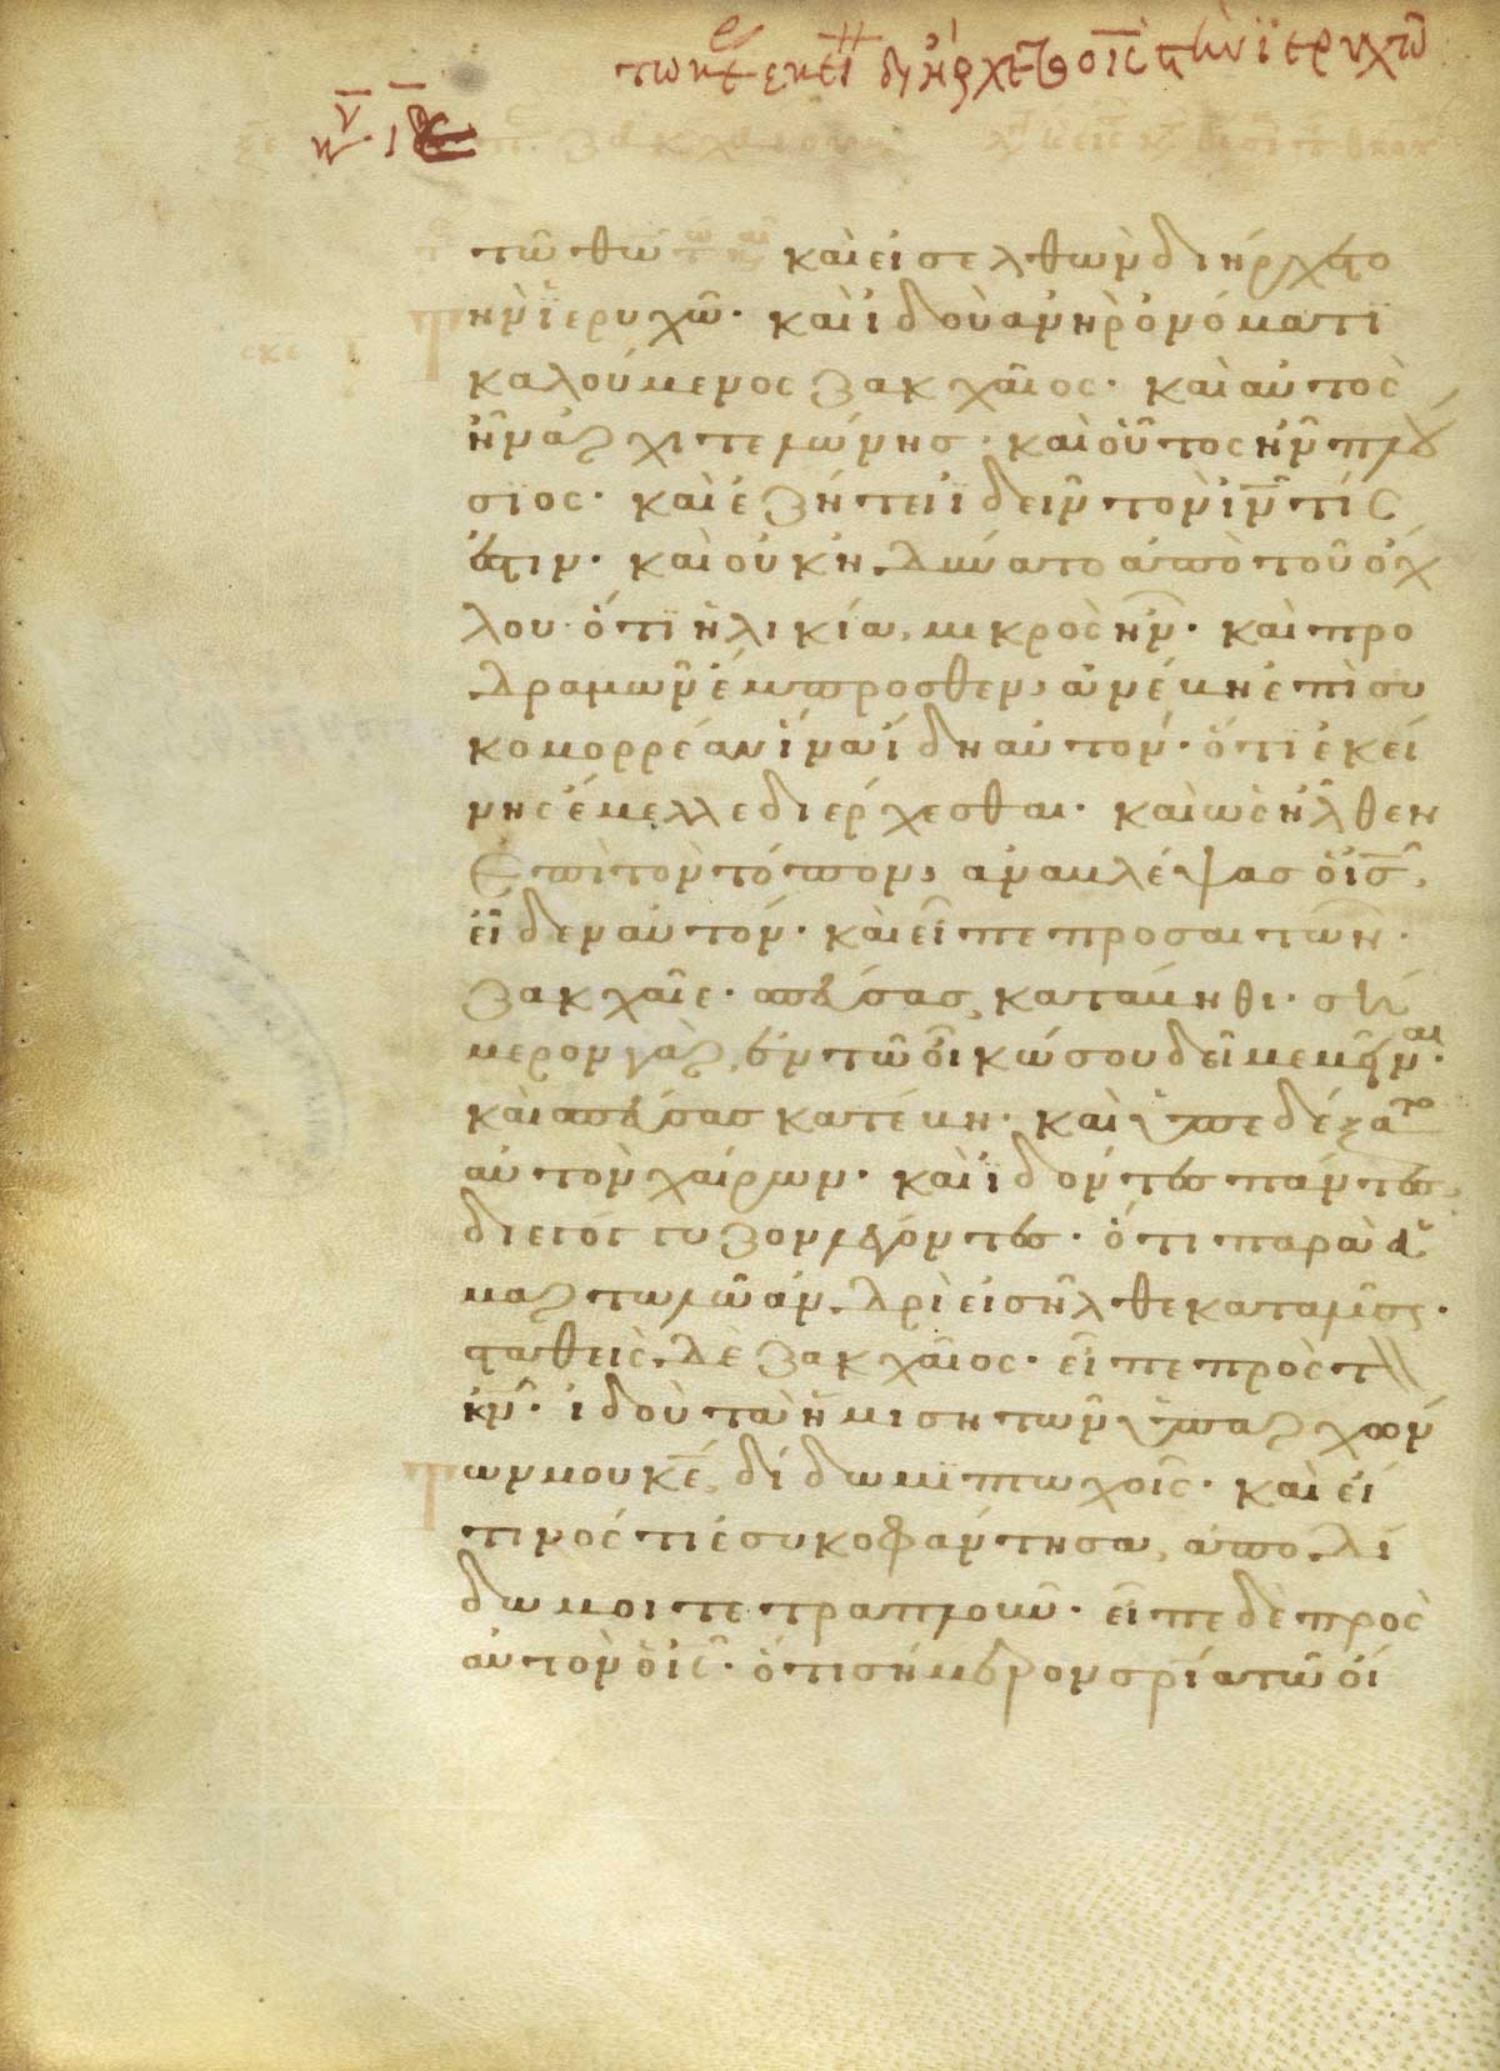 τῶ καιρῶ ἐκείνω διήρχετο ὁ ις τὴν ϊεριχῶ
τῶ θω καὶ εἰσελθὼν διήρχετο
τὴν ϊεριχῶ· καὶ ἰδοὺ ἀνὴρ ὀνόματϊ
καλούμενος ζακχαῖος· καὶ αὐτὸς
ἦν ἀρχιτελώνης· καὶ οὗτος ἦν πλού
σϊος· καὶ ἐζήτει ϊδεῖν τὸν ιν τίς
ἐστιν· καὶ οὐκ ἠδύνατο ἀπὸ τοῦ ὄχ
λου ὅτϊ ἡλικία, μικρὸς ἦν· καὶ προ
δραμὼν ἔμπροσθεν, ἀνέβη ἐπὶ συ
κομορρέαν ἵνα ἴδη αὐτόν· ὅτϊ ἐκεί
νης ἔμελλε διέρχεσθαι· καὶ ὡς ἦλθεν
ἐπὶ τὸν τόπον, ἀναβλέψας ὁ ις,
εἶδεν αὐτόν· καὶ εἶπε προς αυτων·
ζακχαῖε· σπεύσας, κατάβηθι· σή
μερον γὰρ, ἐν τῶ οἴκω σου δεῖ με μεῖναι·
καὶ σπεύσας κατέβη· καὶ ὑπεδέξατο
αὐτὸν χαίρων· καὶ ϊδόντες πάντες
διεγόγγυζον λέγοντες· ὅτι παρὰ ἁ
μαρτωλῶ ἀνδρὶ εἰσῆλθε καταλῦσαι·
σταθεὶς δὲ ζακχαῖος· εἶπε πρὸς τὸν
κν· ἰδοὺ τὰ ἡμίση τῶν ὑπαρχόντ
ων μου κε, δίδωμϊ πτωχοῖς· καὶ εἴ
τινός τϊ ἐσυκοφάντησα, ἀποδί
δωμοι τετραπλοῦν· εἶπε δὲ πρὸς
αὐτὸν ὁ ις· ὅτι σήμερον σρία τῶ οἴ